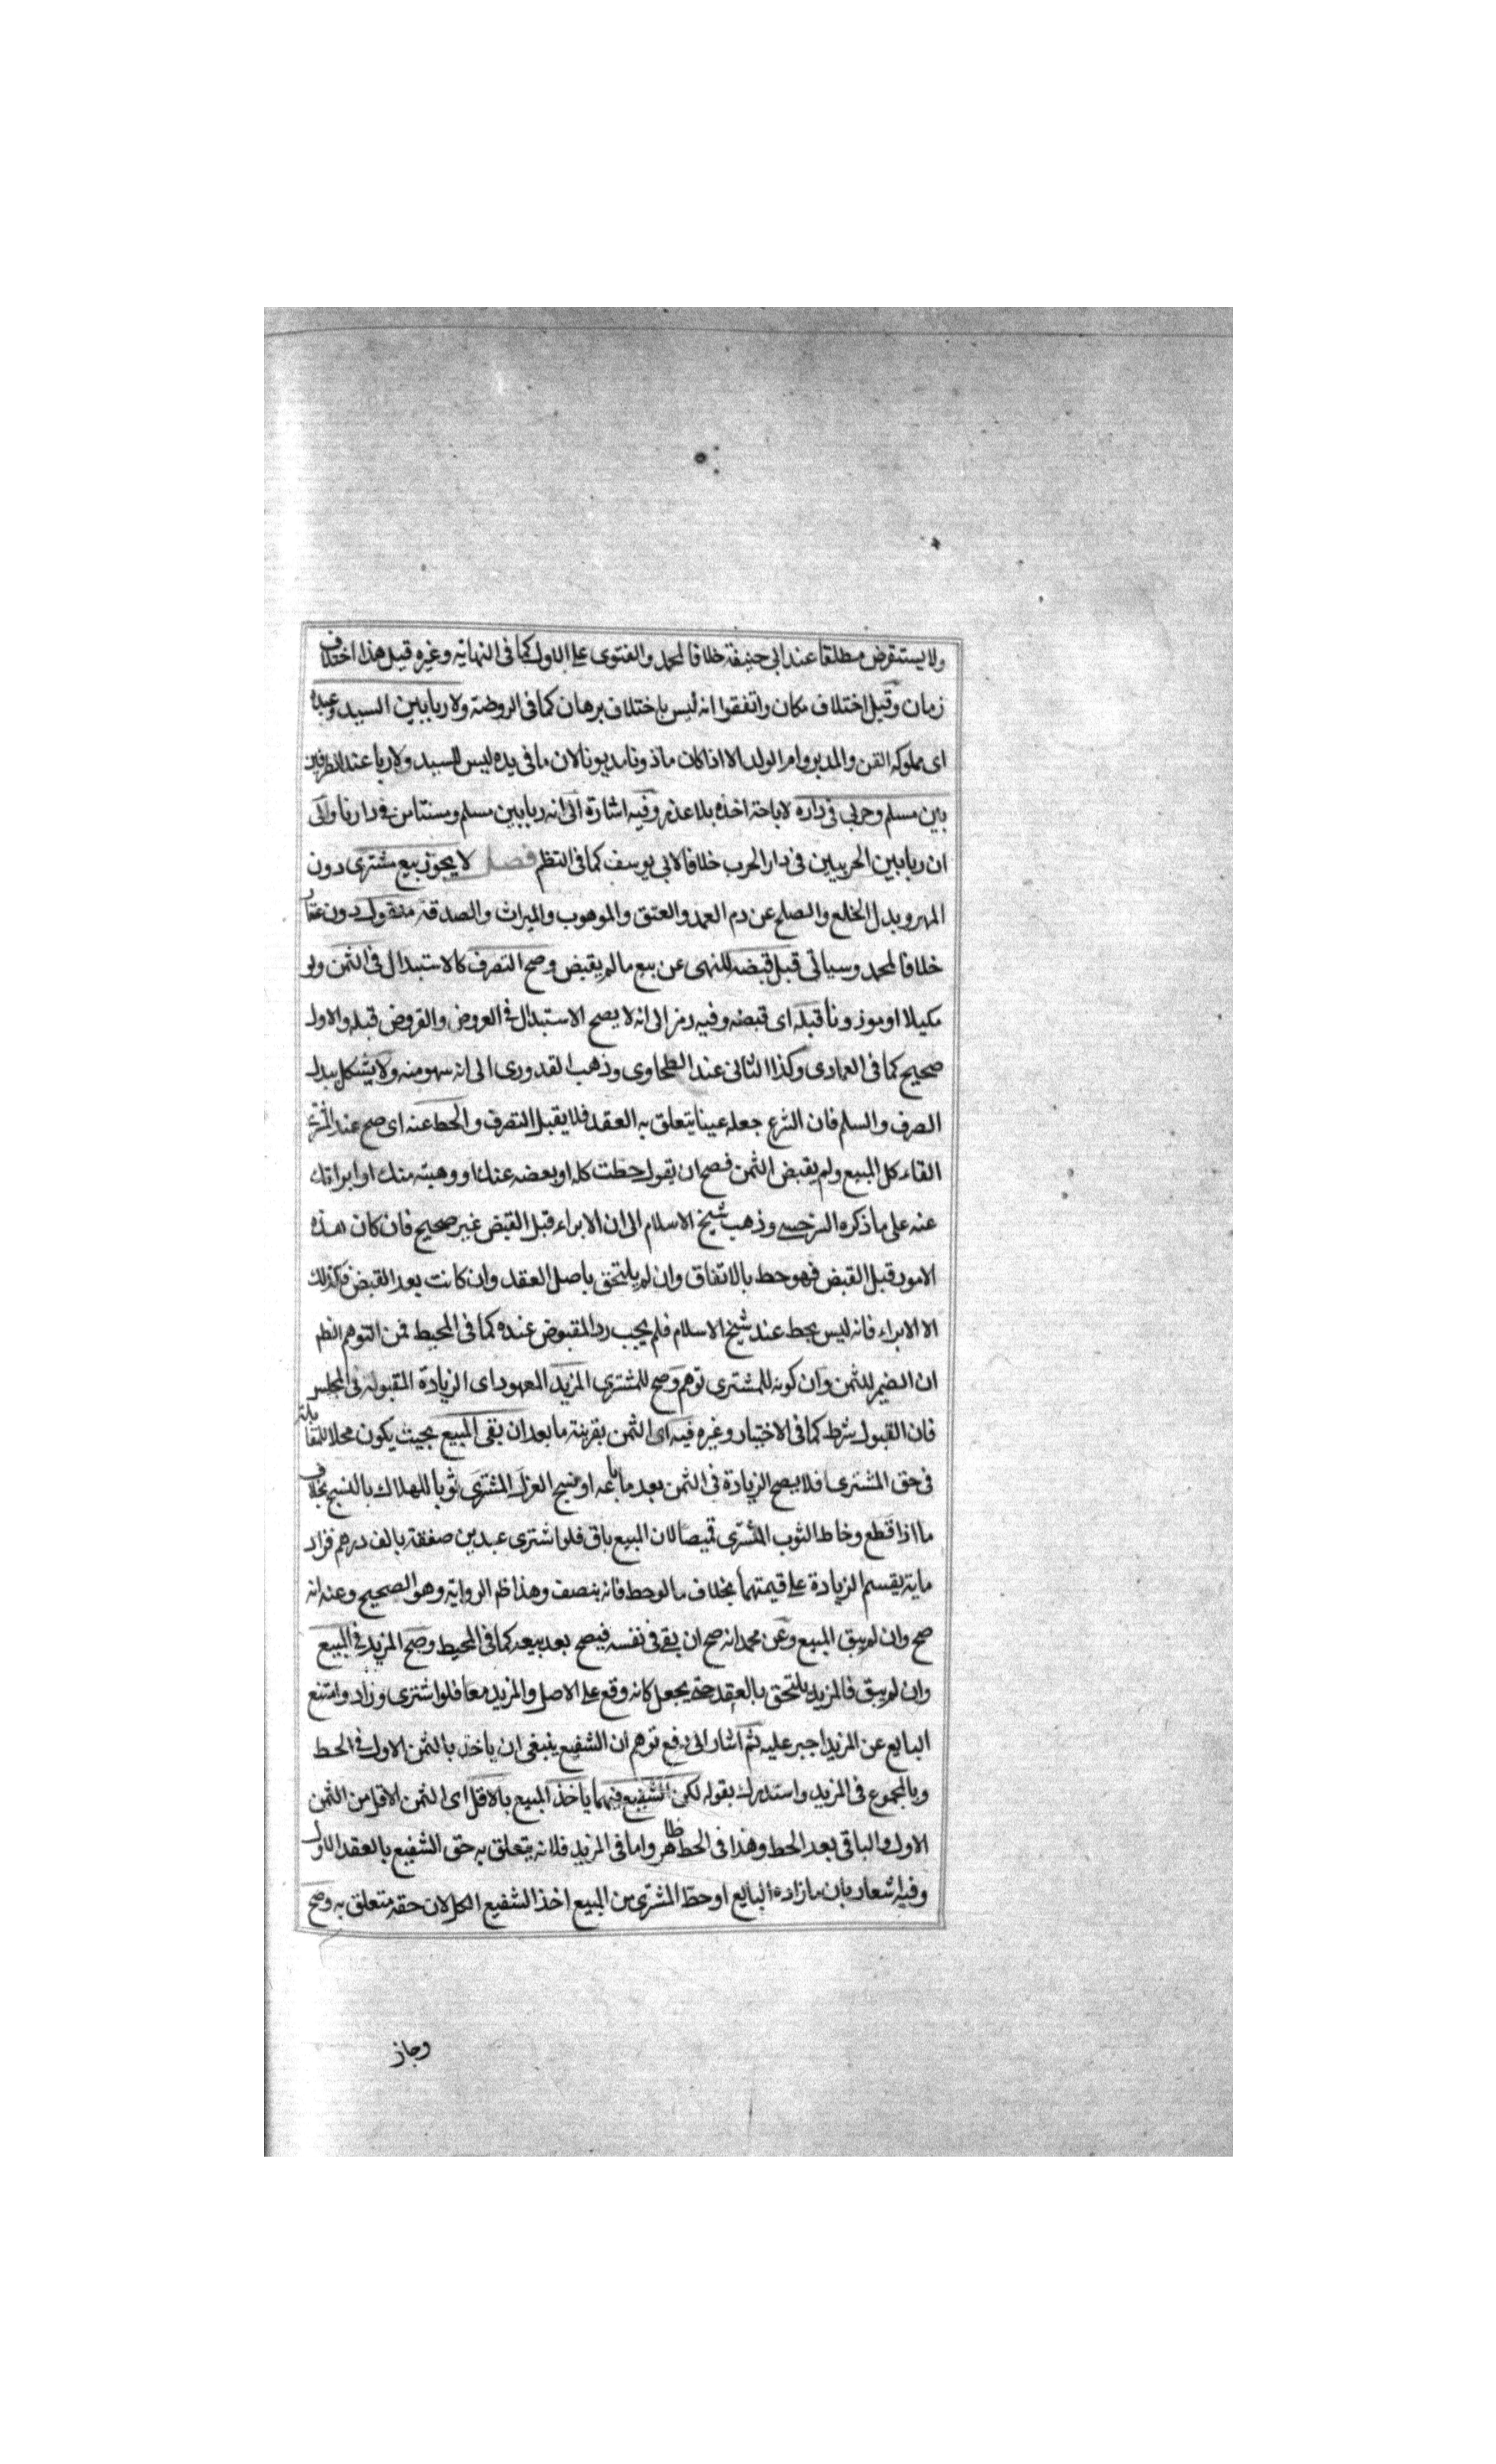 ولا يستقرض مطلقا عند ابي حنيفة خلافا لمحمد والفتوى على الاول كما فى النهاية وغيره قيل هذا اختلاف
زمان وقيل اختلاف مكان واتفقوا انه ليس باختلاف برهان كما فى الروضة ولا ربا بين السيد وعبده
اى مملوكه القن والمدبر وام الولد الا اذا كان ماذونا مديونا لان ما فى يده ليس للسيد ولا ربا عند الطرفين
بين مسلم وحربى فى داره لاباحة اخذه بلا عذر وفيه اشارة الى انه ربا بين مسلم ومستامن فى دارنا والى
ان ربا بين الحربيين فى دار الحرب خلافا لابى يوسف كما فى النظم فصل لا يجوز بيع مشترى دون
المهر وبدل الخلع والصلح عن دم العمد والعتق والموهوب والميراث والصدقة منقول دون عقار
خلافا لمحمد وسياتى قبل قبضه للنهى عن بيع ما لم يقبض وصح التصرف كالاستبدال فى الثمن ولو
مكيلا او موزونا قبله اى قبضه وفيه رمز الى انه لا يصح الاستبدال فى العروض والقروض قبله والاول
صحيح كما فى العمادى وكذا الثانى عند الطحاوى وذهب القدورى الى انه سهو منه ولا يشكل ببدل
الصرف والسلم فان الشرع جعله عينا يتعلق به العقد فلا يقبل التصرف والحط عنه اى صح عند
القاء كل المبيع ولم يقبض الثمن فصح ان يقول حطت كله او بعضه عنك او وهبته منك او ابراتك
عنه على ما ذكره السرخسى وذهب شيخ الاسلام الى ان الابراء قبل القبض غير صحيح فان كان هذه
الامور قبل القبض فهو حط بالاتفاق وان لم يلتحق باصل العقد وان كانت بعد القبض فكذلك
الا الابراء فانه ليس بحط عند شيخ الاسلام فلم يجب رد المقبوض عنده كما فى المحيط فمن التوهم الظم
ان الضمير للثمن وان كونه للمشترى توهم وصح للمشترى المزيد المعهود اى الزيادة المقبولة فى المجلس
فان القبول شرط كما فى الاختيار وغيره فيه اى الثمن بقرينة ما بعد ان بقى المبيع بحيث يكون محلا للمقابلة
فى حق المشترى فلا يصح الزيادة فى الثمن بعد ما باعه او نسج الغزل المشترى ثوبا للهلاك بالنسج بخلاف
ما اذا قطع وخاط الثوب المشترى قميصا لان المبيع باق فلو اشترى عبدين صفقة بالف درهم فزاد
ماية يقسم الزيادة على قيمتهما بخلاف ما لو حط فانه ينصف وهذا ظم الرواية وهو الصحيح وعنه انه
صح وان لم يبق المبيع وعن محمد انه صح ان بقى فى نفسه فيصح بعد بيعه كما فى المحيط وصح المزيد فى المبيع
وان لم يبق فالمزيد يلتحق بالعقد حتى يجعل كانه وقع على الاصل والمزيد معا فلو اشترى وزاد وامتنع
البايع عن المزيد اجبر عليه ثم اشار الى دفع توهم ان الشفيع ينبغى ان ياخذ بالثمن الاول فى الحط
وبالمجموع فى المزيد واستدرك بقوله لكن الشفيع فيهما ياخذ المبيع بالاقل اى الثمن الاقل من الثمن
الاول والباقى بعد الحط وهذا فى الحط ظاهر واما فى المزيد فلانه يتعلق به حق الشفيع بالعقد الاول
وفيه اشعار بان ما زاده البايع او حط المشترى من المبيع اخذ الشفيع الكل لان حقه متعلق به وصح
وجاز